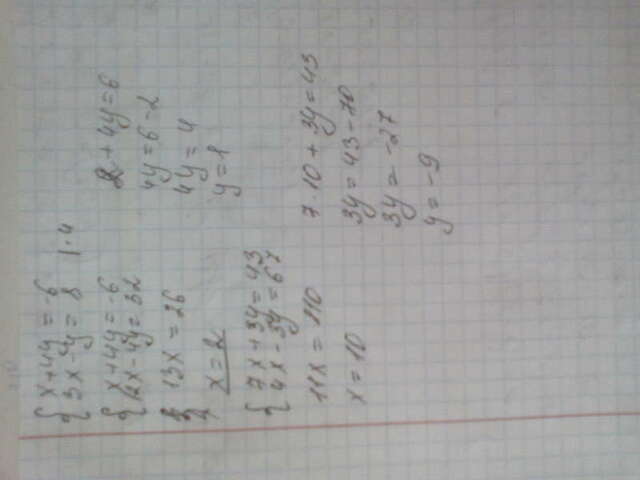 x+4y = -6
3x-y = 8 | · 4
x+4y = -6
12x-4y = 32
13x = 26
x = 2
2 + 4y = 6
4y = 6-2
4y = 4
y = 1
7x+3y = 43
4x-3y = 67
11x = 110
x = 10
7 · 10 + 3y = 43
3y = 43-70
3y = -27
y = -9